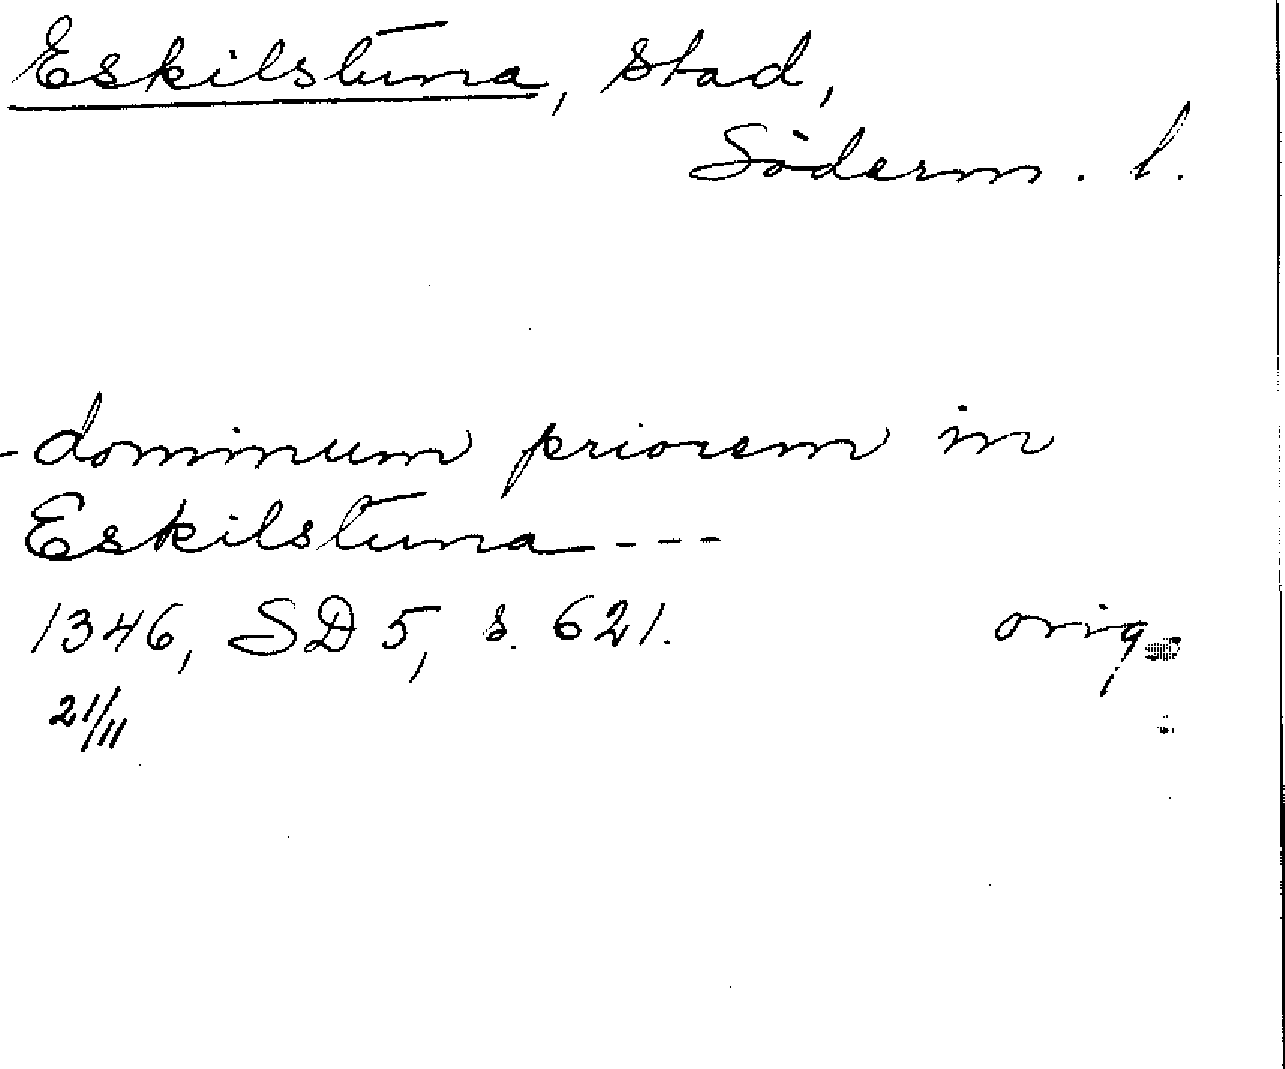 Eskilstuna, stad,
Söderm. l.
- dominum priorem in
Eskilstuna - - -
1346, SD 5, s. 621. orig.
21/11